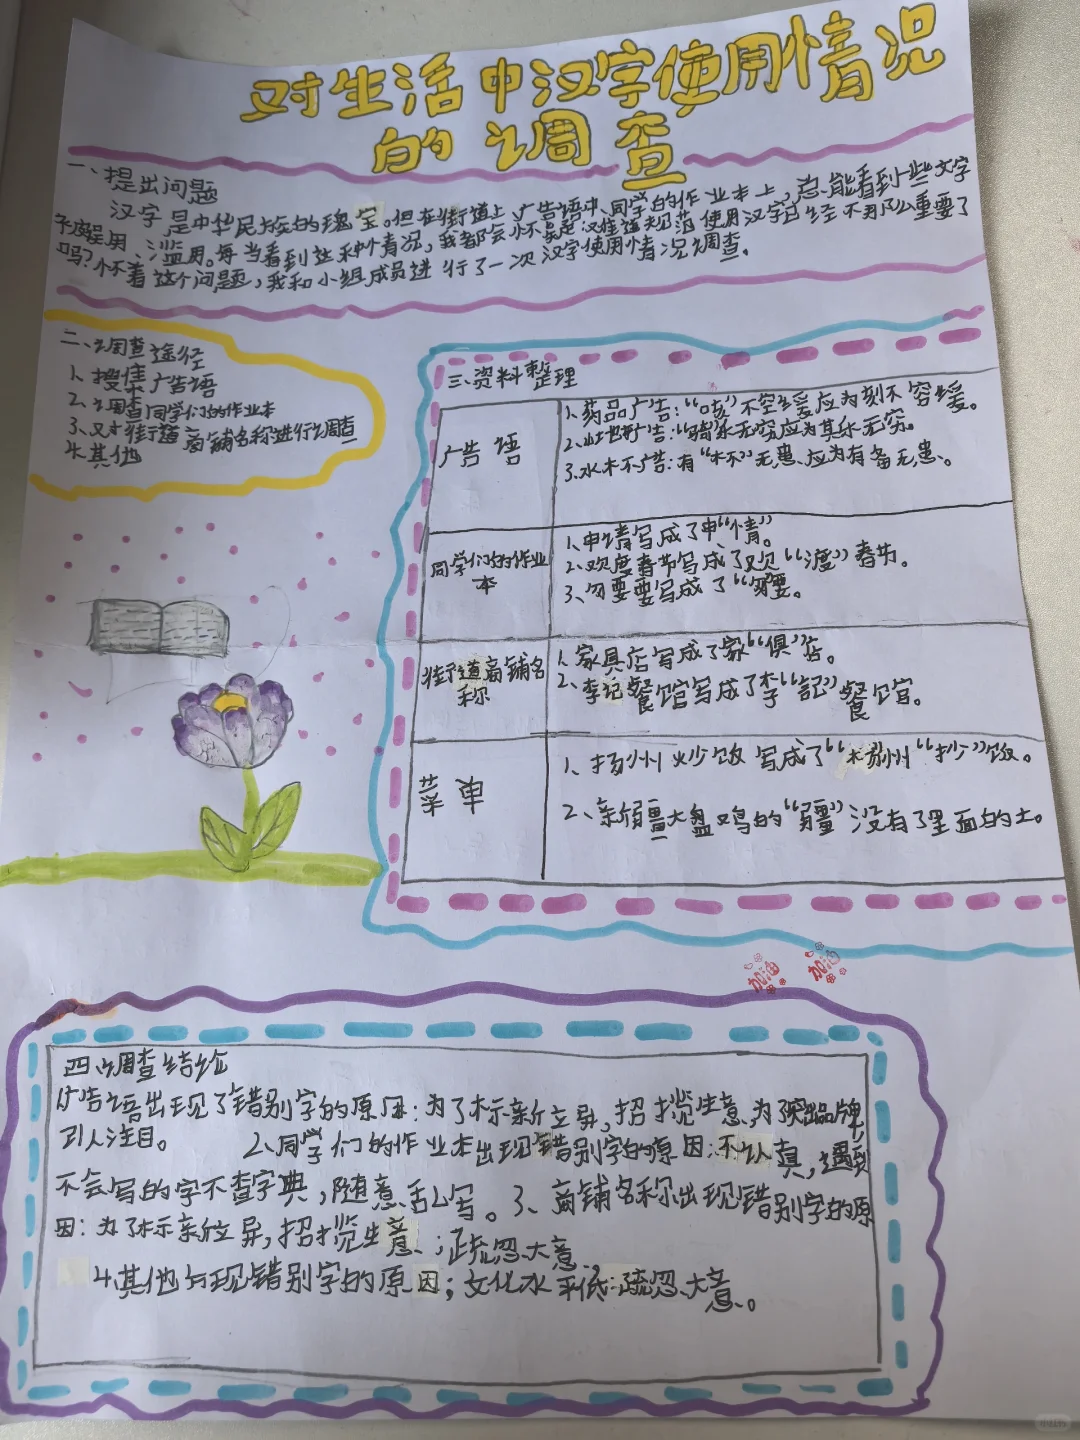 对生活中汉字使用情况
的调查
一、提出问题
汉字是中华民族的瑰宝。但在街道上、广告语中、同学的作业本上,总能看到一些文字
被误用、滥用。每当看到这种情况,我都会怀疑:难道规范使用汉字已经不那么重要了
吗?怀着这个问题,我和小组成员进行了一次汉字使用情况调查。
二、调查途径
1、搜集广告语
2、调查同学们的作业本
3、对街道商铺名称进行调查
4、其他
三、资料整理
广告语
1、药品广告:“咳”不容缓应为刻不容缓。
2、山地车广告:“骑”乐无穷应为其乐无穷。
3、水杯广告:有“杯”无患、应为有备无患、。
同学们的作业
本
1、申请写成了申“情”
2、欢度春节写成了欢“渡”春节。
3、勿要要写成了“要。
街道商铺名
称
1、家具店写成了家“俱”店。
2、李记餐馆写成了李“記”餐馆。
菜单
1、扬州炒饭写成了“杨州“抄”饭。
2、新疆大盘鸡的“疆”没有了里面的土。
加油
加油
四调查结论
广告语出现了错别字的原因:为了标新立异,招揽生意、为了突出品牌,
引人注目。 2、同学们的作业本出现错别字的原因:不认真,遇到
不会写的字不查字典,随意乱写。3、商铺名称出现错别字的原
因:为了标新立异,招揽生意、;疏忽大意、
4、其他出现错别字的原因;文化水平低;疏忽大意、。